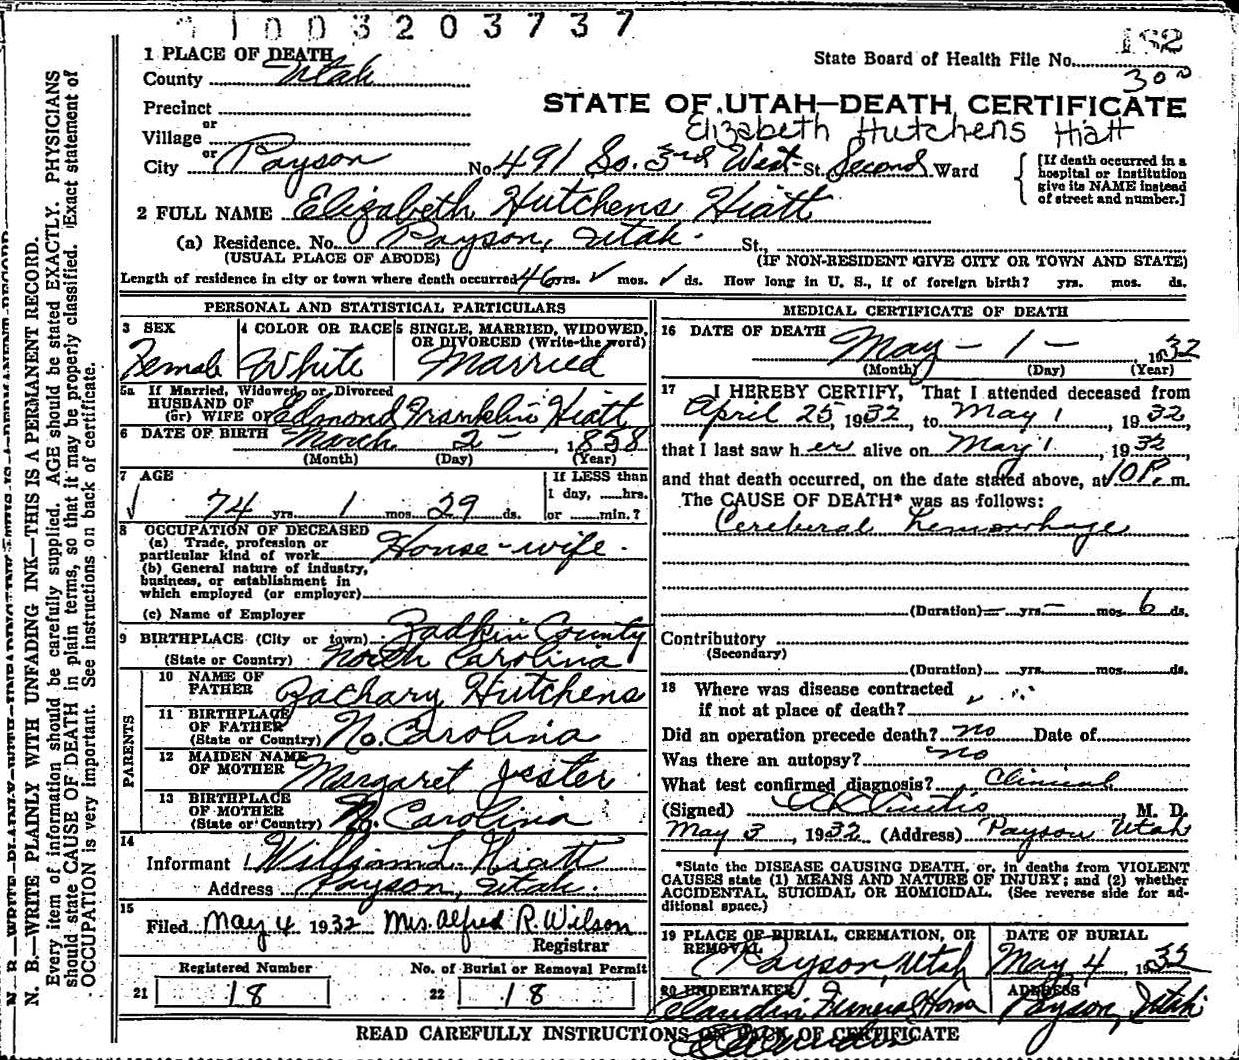 1003203737
182
1 PLACE OF DEATH
State Board of Health File No.
County Utah
300
Precinct
STATE OF UTAH—DEATH CERTIFICATE
or
Village
Elizabeth Hutchens Hiatt
or
City Payson No. 491 So. 3rd West St. Second Ward
[If death occurred in a hospital or institution give its NAME instead of street and number.]
2 FULL NAME Elizabeth Hutchens Hiatt
(a) Residence. No. Payson, Utah. St.,
(USUAL PLACE OF ABODE) (IF NON-RESIDENT GIVE CITY OR TOWN AND STATE)
Length of residence in city or town where death occurred 46 yrs. ✓ mos. ✓ ds. How long in U. S., if of foreign birth? yrs. mos. ds.
PERSONAL AND STATISTICAL PARTICULARS
3 SEX
Female
4 COLOR OR RACE
White
5 SINGLE, MARRIED, WIDOWED, OR DIVORCED (Write the word)
Married
5a If Married, Widowed or Divorced
HUSBAND OF
(or) WIFE OF Edmond Franklin Hiatt
6 DATE OF BIRTH March 2 - 1858
(Month) (Day) (Year)
7 AGE
74 yrs. 1 mos. 29 ds.
If LESS than
1 day, hrs.
or min.?
8 OCCUPATION OF DECEASED
(a) Trade, profession or
particular kind of work House-wife.
(b) General nature of industry,
business, or establishment in
which employed (or employer)
(c) Name of Employer
9 BIRTHPLACE (City or town) Zadkin County
(State or Country) North Carolina
PARENTS
10 NAME OF
FATHER Zachary Hutchens
11 BIRTHPLACE
OF FATHER
(State or Country) No. Carolina
12 MAIDEN NAME
OF MOTHER Margaret Jester
13 BIRTHPLACE
OF MOTHER
(State or Country) No. Carolina
14
Informant William L. Hiatt
Address Payson, Utah.
15
Filed May 4 1932 Mrs. Alfred R. Wilson
Registrar
Registered Number
21 18
No. of Burial or Removal Permit
22 18
MEDICAL CERTIFICATE OF DEATH
16 DATE OF DEATH May - 1 - , 1932
(Month) (Day) (Year)
17 I HEREBY CERTIFY, That I attended deceased from
April 25, 1932, to May 1, 1932,
that I last saw her alive on May 1, 1932
and that death occurred, on the date stated above, at 10 P. m.
The CAUSE OF DEATH* was as follows:
Cereberal hemorrhage
(Duration) — yrs. — mos. 6 ds.
Contributory
(Secondary)
(Duration) yrs. mos. ds.
18 Where was disease contracted
if not at place of death?
Did an operation precede death? no Date of
Was there an autopsy? no
What test confirmed diagnosis? Clinical
(Signed) Curtis M. D.
May 3, 1932 (Address) Payson Utah
*State the DISEASE CAUSING DEATH, or, in deaths from VIOLENT
CAUSES state (1) MEANS AND NATURE OF INJURY; and (2) whether
ACCIDENTAL, SUICIDAL OR HOMICIDAL. (See reverse side for ad-
ditional space.)
19 PLACE OF BURIAL, CREMATION, OR
REMOVAL
Payson, Utah
DATE OF BURIAL
May 4, 1932
20 UNDERTAKER
Claudin Funeral Home
ADDRESS
Payson, Utah
READ CAREFULLY INSTRUCTIONS ON BACK OF CERTIFICATE
N. B.—WRITE PLAINLY WITH UNFADING INK—THIS IS A PERMANENT RECORD.
Every item of information should be carefully supplied. AGE should be stated EXACTLY. PHYSICIANS
should state CAUSE OF DEATH in plain terms, so that it may be properly classified. Exact statement of
OCCUPATION is very important. See instructions on back of certificate.